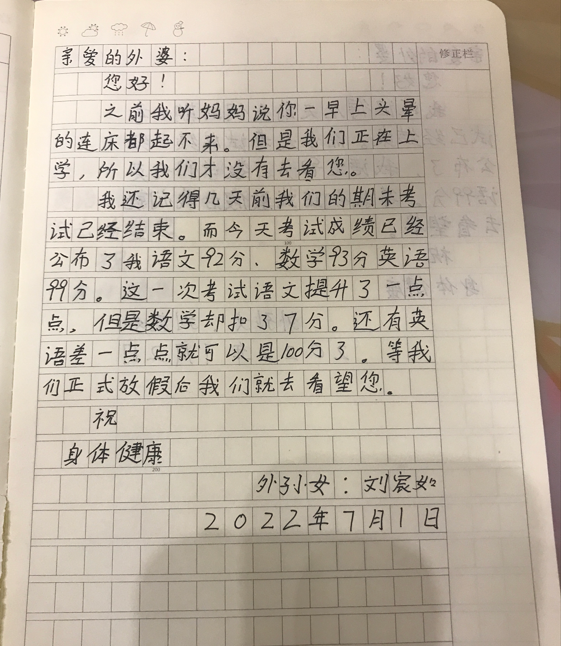 修正栏
亲爱的外婆：
您好！
之前我听妈妈说你一早上头晕
的连床都起不来。但是我们正在上
学，所以我们才没有去看您。
我还记得几天前我们的期末考
试已经结束。而今天考试成绩已经
公布了我语文92分、数学93分英语
99分。这一次考试语文提升了一点
点，但是数学却扣了7分。还有英
语差一点点就可以是100分了。等我
们正式放假后我们就去看望您。
祝
身体健康
外孙女：刘宸如
2022年7月1日